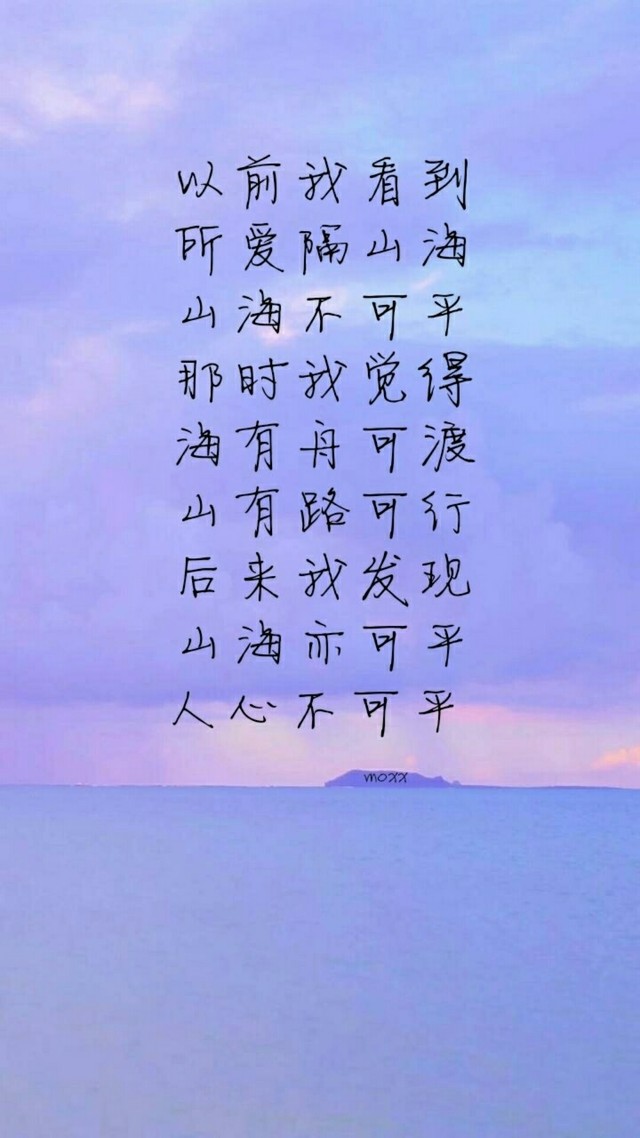 以前我看到
所爱隔山海
山海不可平
那时我觉得
海有舟可渡
山有路可行
后来我发现
山海亦可平
人心不可平
moxx